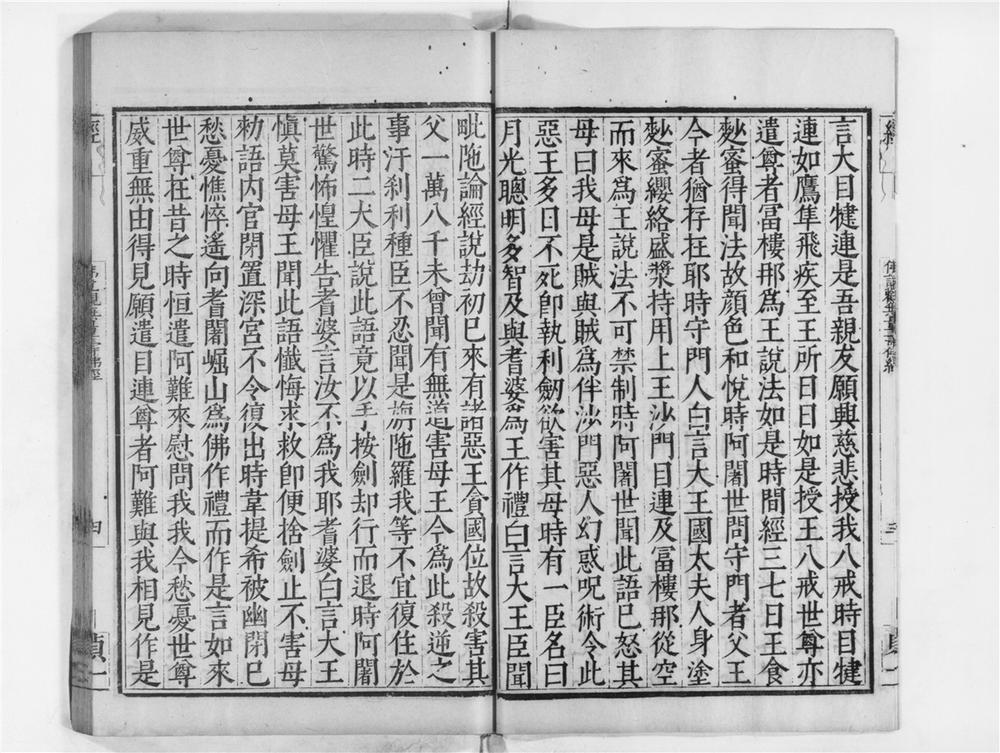 言大目犍連是吾親友願興慈悲授我八戒時目犍
連如鷹隼飛疾至王所日日如是授王八戒世尊亦
遣尊者富樓那爲王說法如是時間經三七日王食
麨蜜得聞法故顔色和悅時阿闍世問守門者父王
今者猶存在耶時守門人白言大王國太夫人身塗
麨蜜纓絡盛漿持用上王沙門目連及富樓那從空
而來爲王說法不可禁制時阿闍世聞此語已怒其
母曰我母是賊與賊爲伴沙門惡人幻惑呪術令此
惡王多日不死卽執利劒欲害其母時有一臣名曰
月光聰明多智及與耆婆爲王作禮白言大王臣聞
毗陁論經說劫初已來有諸惡王貪國位故殺害其
父一萬八千未曾聞有無道害母王今爲此殺逆之
事汙刹利種臣不忍聞是旃陁羅我等不宜復住於
此時二大臣說此語竟以手按劍却行而退時阿闍
世驚怖惶懼告耆婆言汝不爲我耶耆婆白言大王
愼莫害母王聞此語懺悔求救卽便捨劍止不害母
勑語内官閉置深宮不令復出時韋提希被幽閉已
愁憂憔悴遙向耆闍崛山爲佛作禮而作是言如來
世尊在昔之時恒遣阿難來慰問我我今愁憂世尊
威重無由得見願遣目連尊者阿難與我相見作是